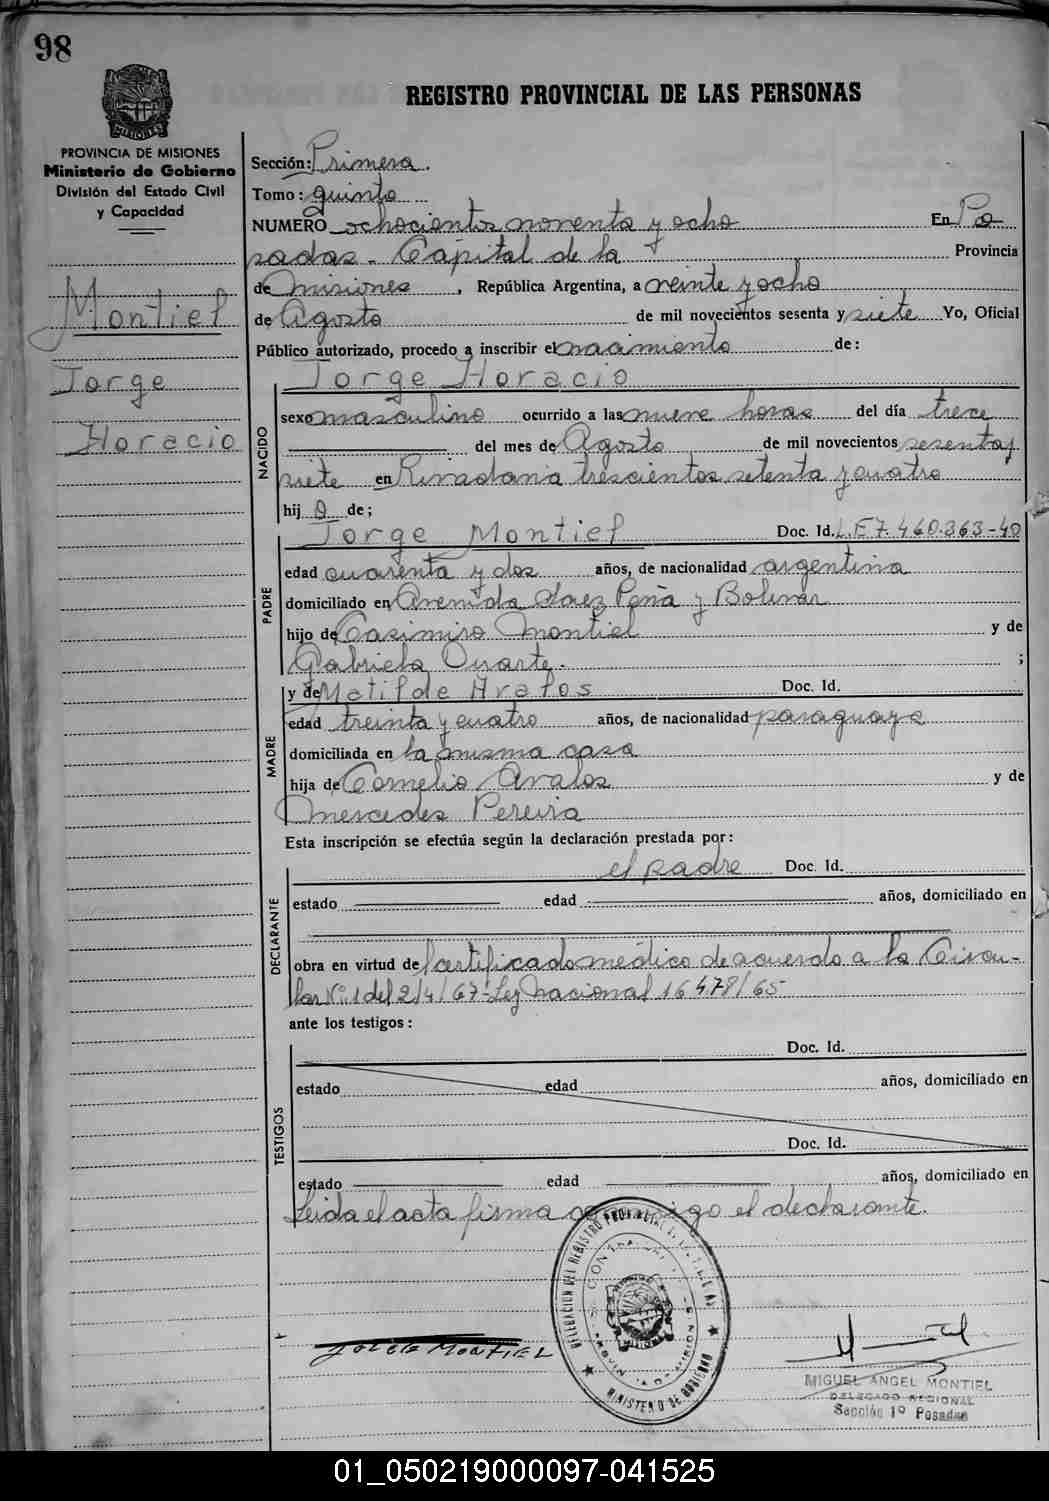 98
REGISTRO PROVINCIAL DE LAS PERSONAS
MISIONES
PROVINCIA DE MISIONES
Ministerio de Gobierno
División del Estado Civil
y Capacidad
Montiel
Jorge
Horacio
Sección: Primera.
Tomo: quinto
NUMERO ochocientos noventa y ocho En Po
sadas - Capital de la Provincia
de Misiones, República Argentina, a veinte y ocho
de Agosto de mil novecientos sesenta y siete Yo, Oficial
Público autorizado, procedo a inscribir el nacimiento de:
NACIDO
Jorge Horacio
sexo masculino ocurrido a las nueve horas del día trece
del mes de Agosto de mil novecientos sesenta y
siete en Rivadavia trescientos setenta y cuatro
hij o de;
PADRE
Jorge Montiel Doc. Id. L.E 7.460.363-40
edad cuarenta y dos años, de nacionalidad argentina
domiciliado en Avenida Saez Peña y Bolivar
hijo de Casimiro Montiel y de
Gabriela Duarte. ;
MADRE
y de Matilde Avalos Doc. Id.
edad treinta y cuatro años, de nacionalidad paraguaya
domiciliada en la misma casa
hija de Cornelio Avalos y de
Mercedes Pereira
Esta inscripción se efectúa según la declaración prestada por:
DECLARANTE
el padre Doc. Id.
estado edad años, domiciliado en
obra en virtud de certificado médico de acuerdo a la Circu-
lar Nº 1 del 2/4/67-Ley nacional 16478/65
ante los testigos:
TESTIGOS
Doc. Id.
estado edad años, domiciliado en
Doc. Id.
estado edad años, domiciliado en
Leida el acta firma el declarante.
DELEGACION DEL REGISTRO PROVINCIAL
MINISTERIO DE GOBIERNO
MISIONES
JORGE MONTIEL
MIGUEL ANGEL MONTIEL
DELEGADO REGIONAL
Sección 1º Posadas
01_050219000097-041525